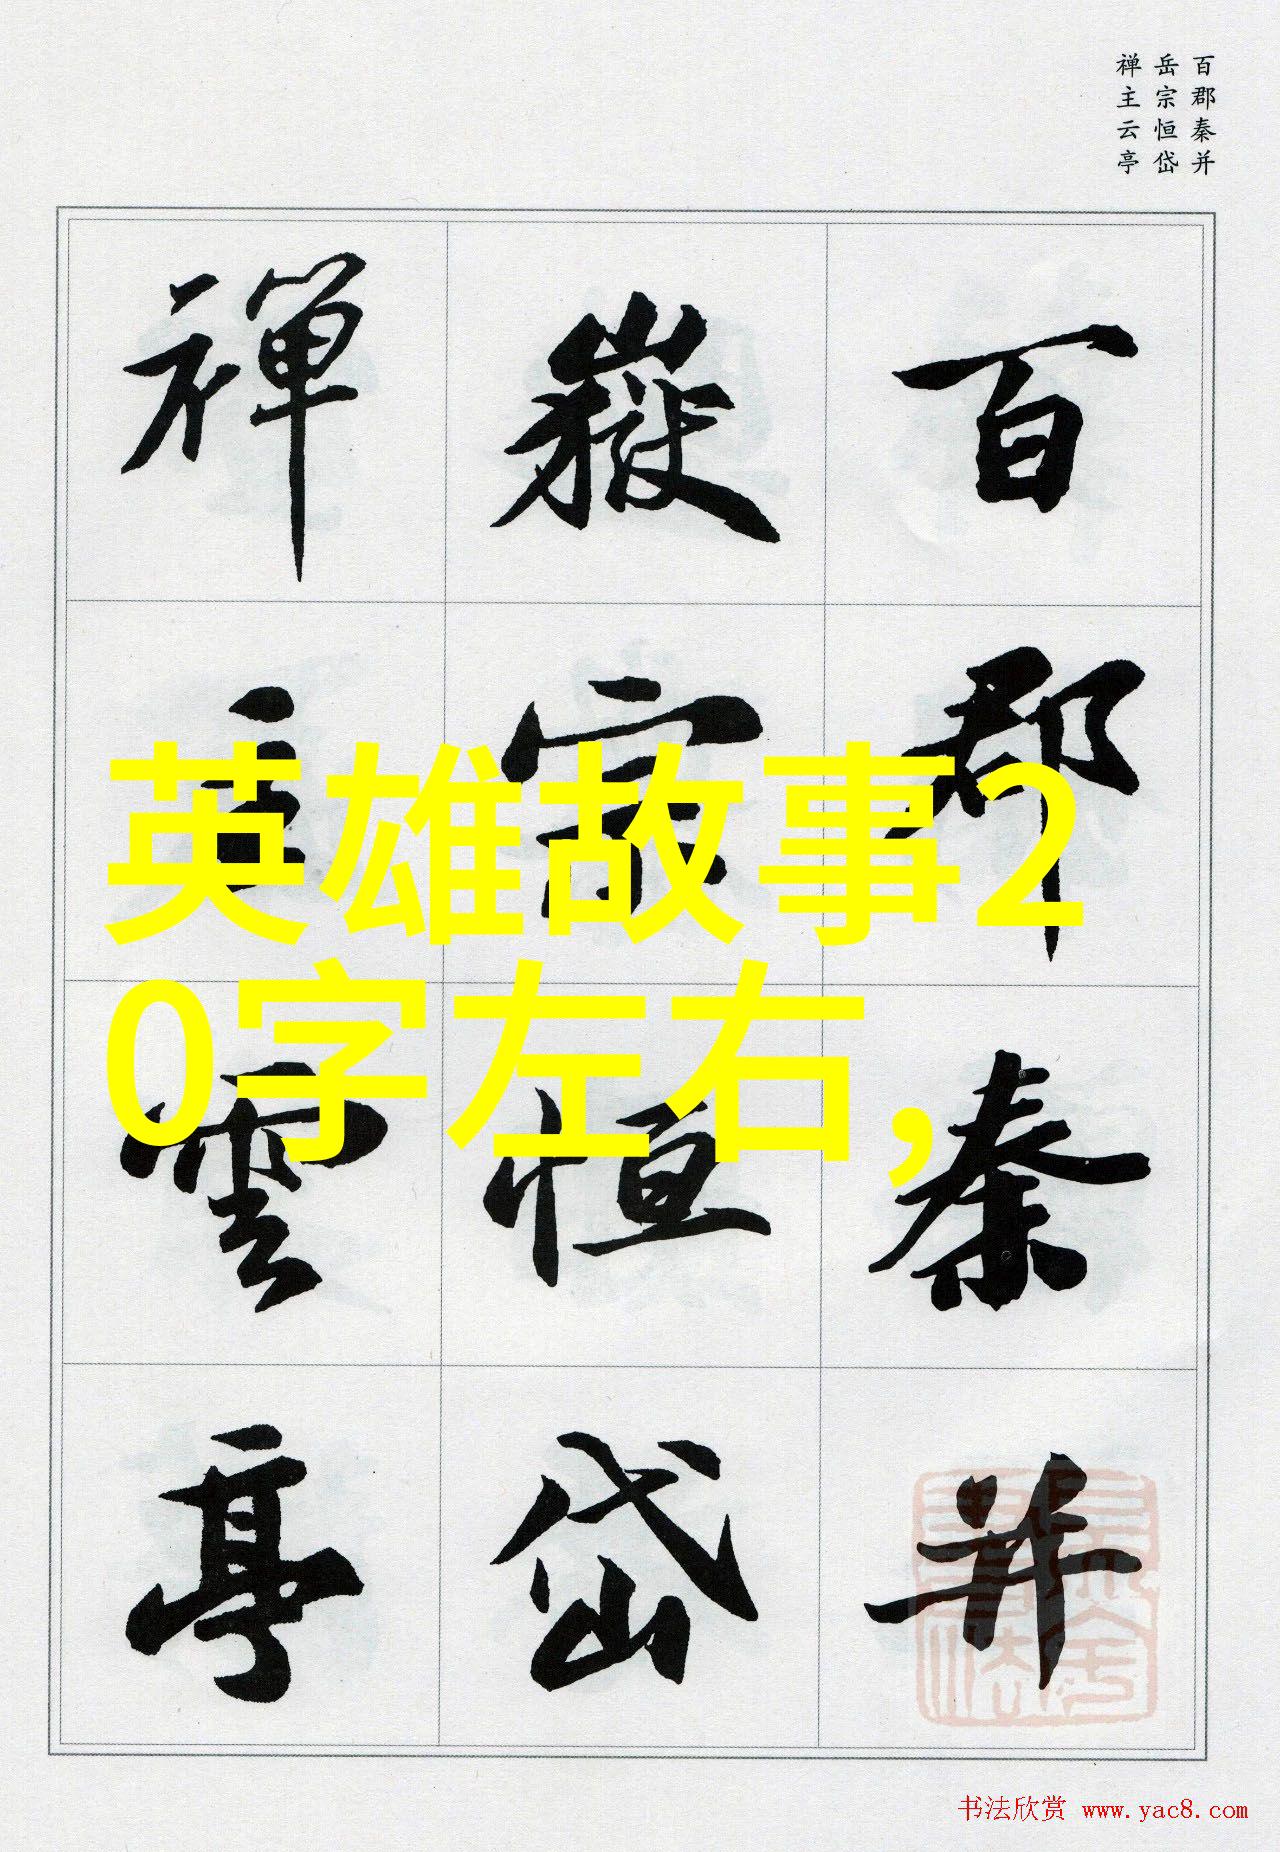 百郡秦并
岳宗恒岱
禅主云亭
百郡秦并
嶽宗恒岱
禪主雲亭
英雄故事2
0字左右,
书法欣赏 www.yac8.com